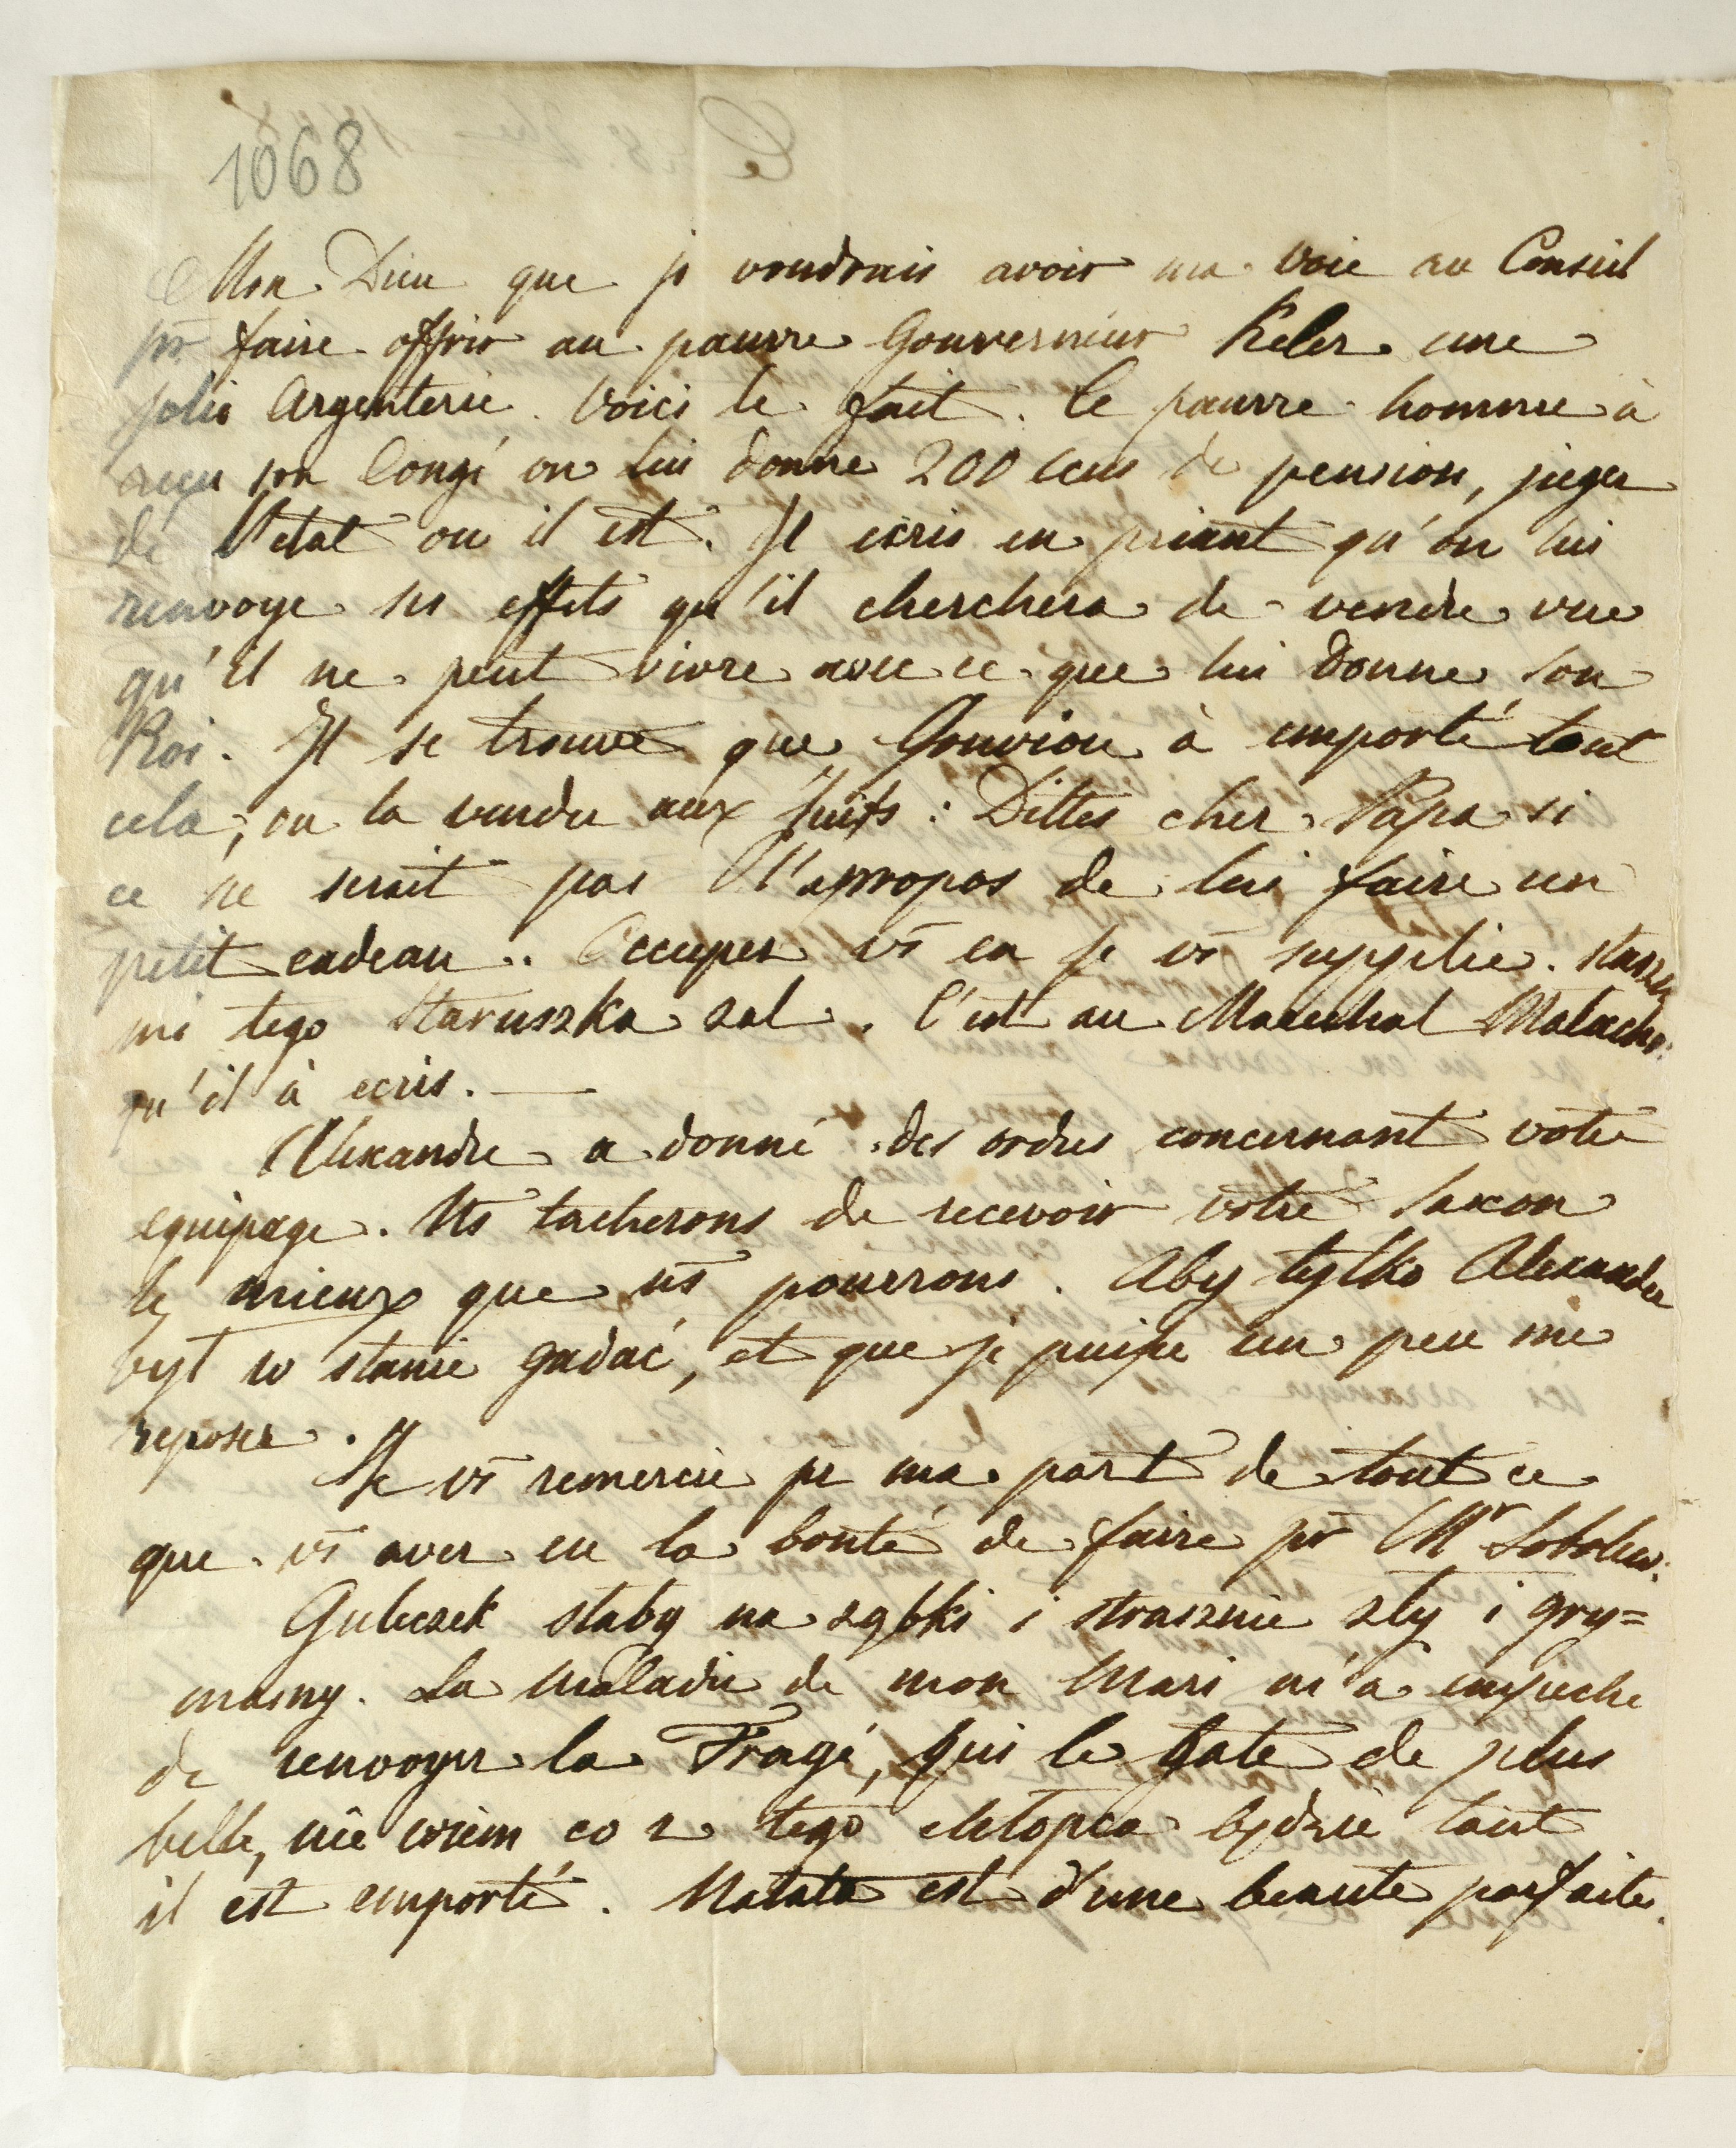 1068
Mon Dieu que je voudrais avoir ma voie au Conseil
pr faire offrir au pauvre Gouverneur Keler une
jolie Argenterie. Voici le fait. Ce pauvre homme à
reçu son Congé on lui donne 200 ecus de pension, juger
de l'etat ou il est. Il ecris en priant qu'on lui
renvoye ses effets qu'il cherchera de vendre vue
qu'il ne peut vivre avec ce que lui donne son
Roi. Il se trouve que Gouvion à emporté tout
cela, ou la vendu aux Juifs: Dittes cher Papa si
ce ne serait pas l'apropos de lui faire un
petit cadeau.. Occuper vs en je vs supplie.
mi tego staruszka zal. C'est au Marechal Malacho:
qu'il à ecris. —
Alexandre a donné des ordres concernant votre
equipage. Ns tacherons de recevoir votre Saxon
le mieux que ns pouerons. Aby tylko Alexander
byl w stanie gadać, et que je puisse un peu me
reposer.
Je vs remercie pr ma part de tout ce
que vs aver eu la bonté de faire pr Mr Sobolew:
Guleczek slaby na ząbki i strasznie zly i gry=
masny. La Maladie de mon Mari m'a empeche
de renvoyer la Fragé, qui le gate de plus
belle, nie wiem co z tego chlopca będzie tant
il est emporté. Natalie est d'une beauté parfaite.